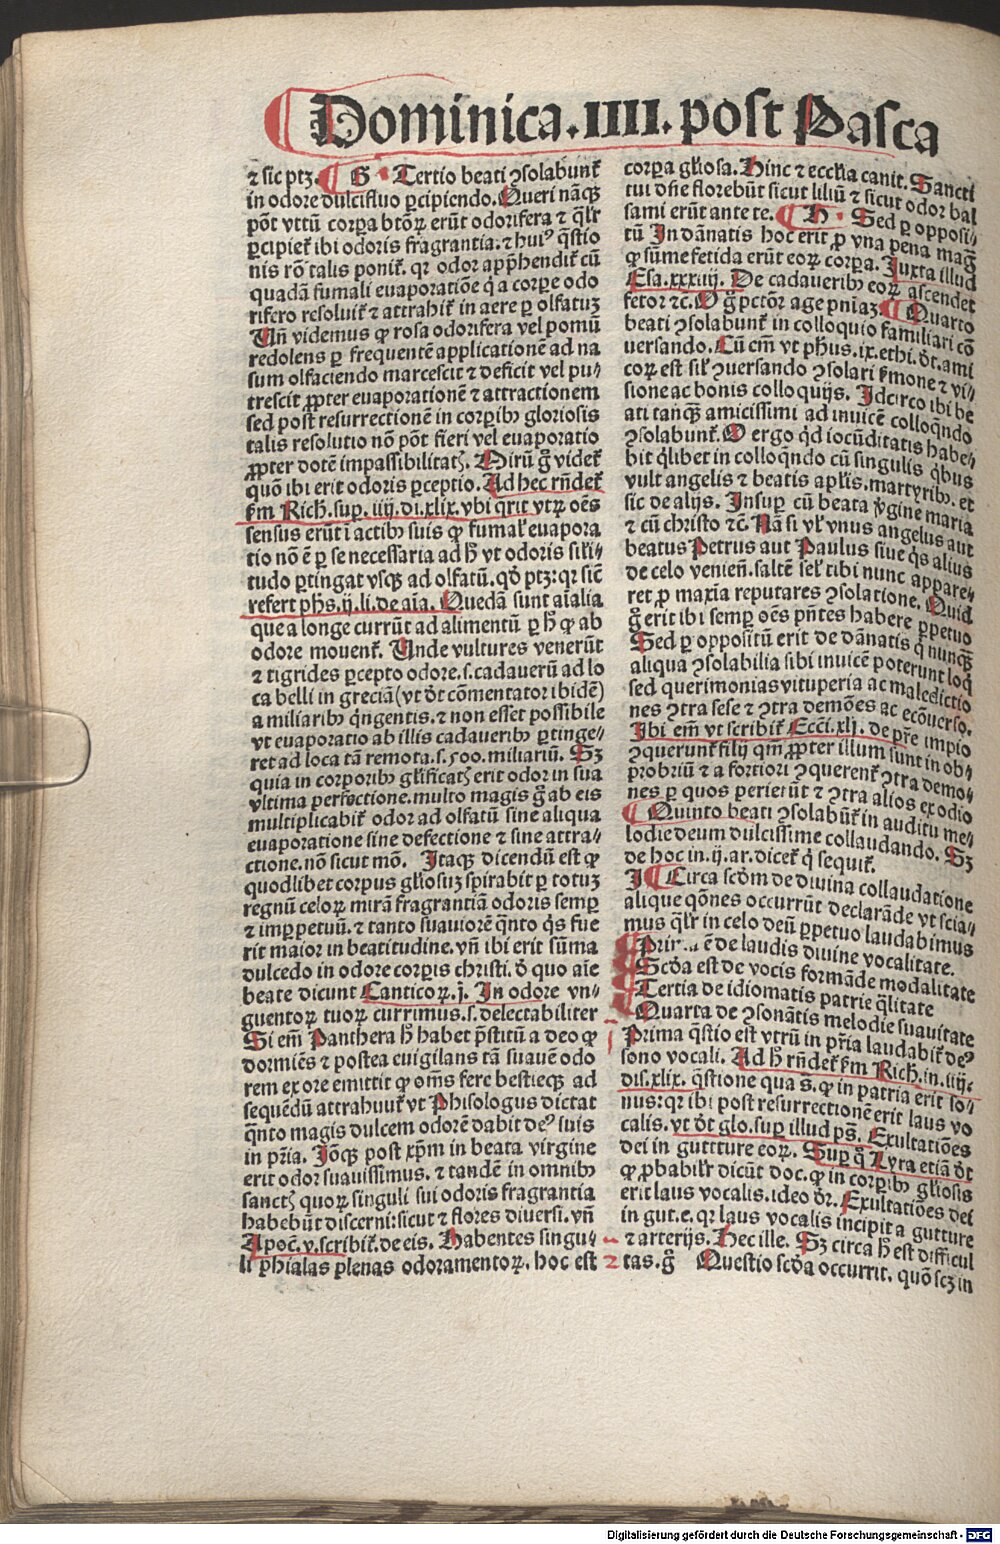 Dominica .IIII. post Pasca
⁊ sic ptꝫ. ¶ G · Tertio beati ꝯsolabunt̃
in odore dulcifluo ꝑcipiendo. Queri nãqꝫ
põt vttũ corꝑa btõꝝ erũt odorifera ⁊ q̃lr̃
ꝑcipiet̃ ibi odoris fragrantia. ⁊ huiꝰ q̃stio
nis rõ talis ponit̃. qꝛ odor apꝓhendit̃ cũ
quadã fumali euaporatiõe q̃ a corꝑe odo
rifero resoluit̃ ⁊ attrahit̃ in aere ꝑ olfatuꝫ
Vñ videmus ꝙ rosa odorifera vel pomũ
redolens ꝑ frequentẽ applicationẽ ad na
sum olfaciendo marcescit ⁊ deficit vel pu⸗
trescit ꝓpter euaporationẽ ⁊ attractionem
sed post resurrectionẽ in corꝑibꝰ gloriosis
talis resolutio nõ põt fieri vel euaporatio
ꝓpter dotẽ impassibilitatꝭ. Mirũ g̃ videt̃
quõ ibi erit odoris ꝑceptio. Ad hec rñdet̃
fm Rich. sup. iiij. di. xlix. vbi qrit vtꝝ oẽs
sensus erũt ĩ actibꝰ suis ꝙ fumal̃ euapora
tio nõ ẽ ꝑ se necessaria ad h̃ vt odoris sil̃i⸗
tudo ꝑtingat vsqꝫ ad olfatũ. qđ ptꝫ: qꝛ sic̃
refert phs. ij. li. de aĩa. Quedã sunt aĩalia
que a longe currũt ad alimentũ ꝑ h̃ ꝙ ab
odore mouent̃. Vnde vultures venerũt
⁊ tigrides ꝑcepto odore. s. cadauerũ ad lo
ca belli in greciã (vt đt cõmentator ibidẽ)
a miliaribꝰ q̃ngentis. ⁊ non esset possibile
vt euaporatio ab illis cadaueribꝰ ꝑtinge⸗
ret ad loca tã remota. s. 500. miliariũ. Sꝫ
quia in corꝑoribꝰ gl̃ificatꝭ erit odor in sua
vltima perfectione. multo magis g̃ ab eis
multiplicabit̃ odor ad olfatũ sine aliqua
euaporatione sine defectione ⁊ sine attra⸗
ctione. nõ sicut mõ. Itaqꝫ dicendũ est ꝙ
quodlibet corpus gl̃iosuꝫ spirabit ꝑ totuꝫ
regnũ celoꝝ mirã fragrantiã odoris semꝑ
⁊ imꝑpetuũ. ⁊ tanto suauiorẽ q̃nto q̃s fue
rit maior in beatitudine. vñ ibi erit sũma
dulcedo in odore corꝑis christi. đ quo aĩe
beate dicunt Canticoꝝ. j. In odore vn⸗
guentoꝝ tuoꝝ currimus. s. delectabiliter
Si em̃ Panthera h̃ habet pr̃stitũ a deo ꝙ
dormiẽs ⁊ postea euigilans tã suauẽ odo
rem ex ore emittit ꝙ om̃s fere bestieqꝫ ad
sequẽdũ attrahunt̃ vt Phisologus dictat
q̃nto magis dulcem odorẽ dabit deꝰ suis
in pr̃ia. Iõqꝫ post xp̃m in beata virgine
erit odor suauissimus. ⁊ tandẽ in omnibꝰ
sanctꝭ quoꝝ singuli sui odoris fragrantia
habebũt discerni: sicut ⁊ flores diuersi. vñ
Apoc̃. v. scribit̃. de eis. Habentes singu⸗
li phialas plenas odoramentoꝝ. hoc est
corꝑa gl̃iosa. Hinc ⁊ eccl̃ia canit. Sancti
tui dñe florebũt sicut liliũ ⁊ sicut odor bal
sami erũt ante te. ¶ H · Sed ꝑ opposi⸗
tũ In dãnatis hoc erit ꝓ vna pena mag̃
ꝙ sũme fetida erũt eoꝝ corꝑa. Iuxta illud
Esa. xxxiiij. De cadaueribꝰ eoꝝ ascendet
fetor ⁊c̃. O g̃ pctõr age pñiaꝫ. ¶ Quarto
beati ꝯsolabunt̃ in colloquio familiari cõ
uersando. Cũ em̃ vt phus. ix. ethi. đt. ami
coꝝ est sil̃ ꝯuersando ꝯsolari ẽmone ⁊ vi⸗
sione ac bonis colloquijs. Idcirco ibi be
ati tanqꝫ amicissimi ad inuicẽ colloqñdo
ꝯsolabunt̃. O ergo q̃d iocũditatis habe⸗
bit q̃libet in colloqñdo cũ singulis q̃bus
vult angelis ⁊ beatis apl̃is. martyribꝰ. et
sic de alijs. Insuꝑ cũ beata v̓gine maria
⁊ cũ christo ⁊c̃. Nã si vl̃ vnus angelus aut
beatus Petrus aut Paulus siue q̃s alius
de celo venieñ. saltẽ sel̃ tibi nunc appare⸗
ret ꝓ maxĩa reputares ꝯsolatione. Quid
g̃ erit ibi semꝑ oẽs pñtes habere ꝑpetuo
Sed ꝑ oppositũ erit de dãnatis q̃ nunqꝫ̃
aliqua ꝯsolabilia sibi inuicẽ poterunt loq̃
sed querimonias vituperia ac maledictio
nes ꝯtra sese ⁊ ꝯtra demões ac ecõuerso.
Ibi em̃ vt scribit̃ Ecci. xlj. de pr̃e impio
ꝯquerunt̃ filij qm̃ ꝓpter illum sunt in ob⸗
probriũ ⁊ a fortiori ꝯquerent̃ ꝯtra demo⸗
nes ꝑ quos perierũt ⁊ ꝯtra alios ex odio
¶ Quinto beati ꝯsolabũt̃ in auditu me⸗
lodie deum dulcissime collaudando. Sꝫ
de hoc in. ij. ar. dicet̃ q̃ sequit̃.
I ¶ Circa scđm de diuina collaudatione
alique q̃ones occurrũt declarãde vt scia⸗
mus q̃lr̃ in celo deũ ꝑpetuo laudabimus
¶ Prima ẽ de laudis diuine vocalitate.
¶ Scđa est de vocis formãde modalitate
¶ Tertia de idiomatis patrie q̃litate
¶ Quarta de ꝯsonãtis melodie suauitate
Prima q̃stio est vtrũ in pr̃ia laudabit̃ deꝰ
sono vocali. Ad h̃ rñdet̃ fm Rich. in. iiij.
dis. xlix. q̃stione qua s̃. ꝙ in patria erit so⸗
nus: qꝛ ibi post resurrectionẽ erit laus vo
calis. vt đt glo. suꝑ illud ps̃. Exultatiões
dei in guttture eoꝝ. Suꝑ q̃ Lyra etiã đt
ꝙ ꝓbabilr̃ dicũt doc. ꝙ in corꝑibꝰ gl̃iosis
erit laus vocalis. ideo đr. Exultatiões dei
in gut. e. qꝛ laus vocalis incipit a gutture
⁊ arterijs. Hec ille. Sꝫ circa h̃ est difficul
tas. g̃ Questio scđa occurrit. quõ scꝫ in
Digitalisierung gefördert durch die Deutsche Forschungsgemeinschaft - DFG